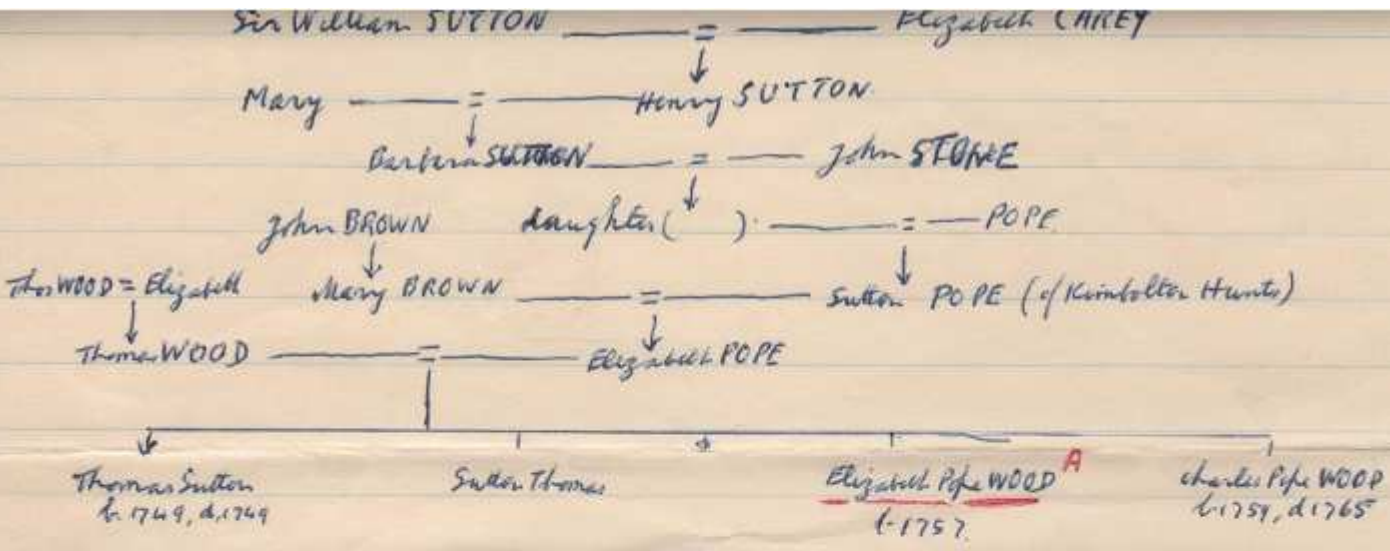 Sir William SUTTON = Elizabeth CAREY
Mary = Henry SUTTON
Barbara SUTTON = John STONE
John BROWN daughter ( ) = POPE
Thos WOOD = Elizabeth Mary BROWN = Sutton POPE (of Kimbolton Hunts)
Thomas WOOD = Elizabeth POPE
Thomas Sutton Sutton Thomas Elizabeth Pope WOOD A Charles Pope WOOD
b. 1749, d. 1749 b. 1757 b. 1759, d 1765